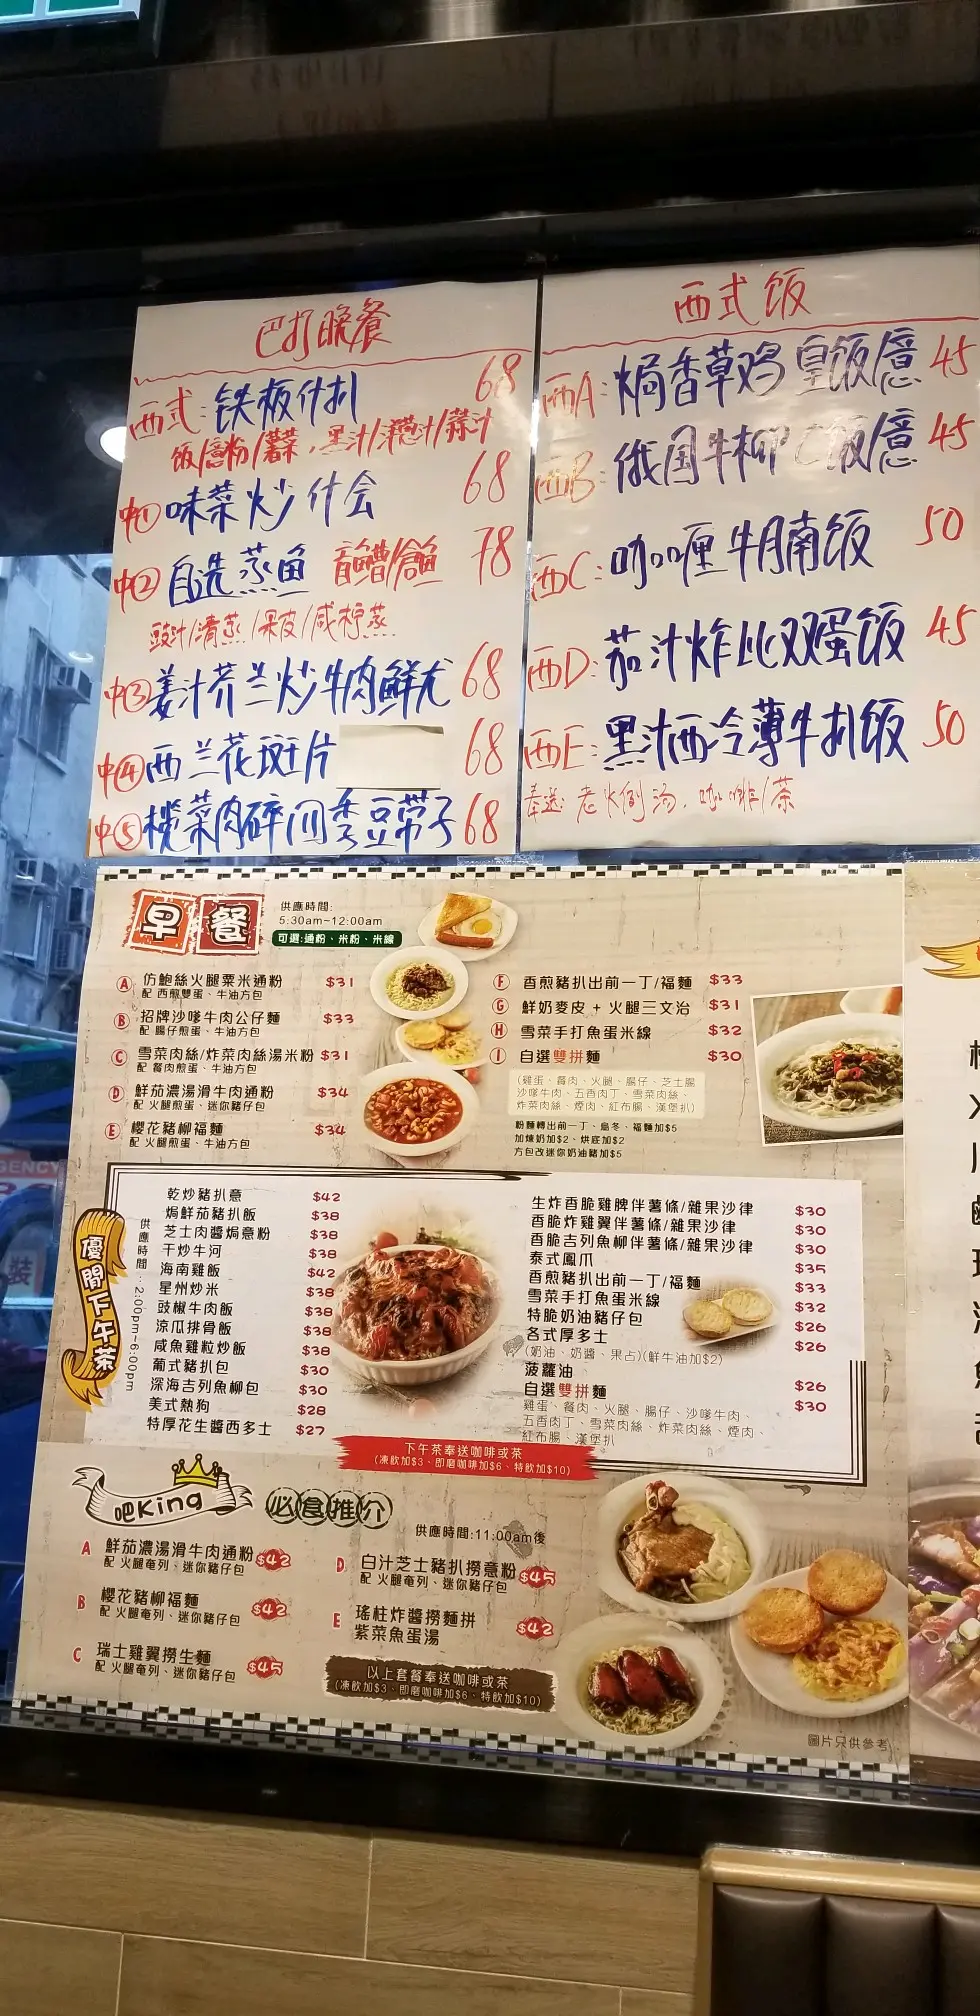 巴打晚餐
西式:铁板什扒 68
饭/意粉/薯菜,黑汁/洋葱汁/蒜汁
中① 味菜炒什会 68
中② 自选蒸鱼 78
豉汁/清蒸/果皮/咸柠蒸
中③ 姜汁芥兰炒牛肉鲜尤 68
中④ 西兰花斑片 68
中⑤ 榄菜肉碎川季豆带子 68
西式饭
西A:焗香草鸡皇饭/意 45
西B:俄国牛柳C饭/意 45
西C:咖喱牛腩饭 50
西D:茄汁炸比双蛋饭 45
西E:黑汁西冷薄牛扒饭 50
奉送 老火例汤,咖啡/茶
早餐
供應時間:
5:30am~12:00am
可選:通粉、米粉、米線
A 仿鮑絲火腿粟米通粉 $31
配 西煎雙蛋、牛油方包
B 招牌沙嗲牛肉公仔麵 $33
配 腸仔煎蛋、牛油方包
C 雪菜肉絲/炸菜肉絲湯米粉 $31
配 餐肉煎蛋、牛油方包
D 鮮茄濃湯滑牛肉通粉 $34
配 火腿煎蛋、迷你豬仔包
E 櫻花豬柳福麵 $34
配 火腿煎蛋、牛油方包
F 香煎豬扒出前一丁/福麵 $33
G 鮮奶麥皮 + 火腿三文治 $31
H 雪菜手打魚蛋米線 $32
I 自選雙拼麵 $30
(雞蛋、餐肉、火腿、腸仔、芝士腸
沙嗲牛肉、五香肉丁、雪菜肉絲、
炸菜肉絲、煙肉、紅布腸、漢堡扒)
粉麵轉出前一丁、烏冬、福麵加$5
加煉奶加$2、烘底加$2
方包改迷你奶油豬加$5
優閒下午茶
供應時間:2:00pm~6:00pm
乾炒豬扒意 $42
焗鮮茄豬扒飯 $38
芝士肉醬焗意粉 $38
干炒牛河 $38
海南雞飯 $42
星州炒米 $38
豉椒牛肉飯 $38
涼瓜排骨飯 $38
咸魚雞粒炒飯 $38
葡式豬扒包 $30
深海吉列魚柳包 $30
美式熱狗 $28
特厚花生醬西多士 $27
生炸香脆雞髀伴薯條/雜果沙律 $30
香脆炸雞翼伴薯條/雜果沙律 $30
香脆吉列魚柳伴薯條/雜果沙律 $30
泰式鳳爪 $35
香煎豬扒出前一丁/福麵 $33
雪菜手打魚蛋米線 $32
特脆奶油豬仔包 $26
各式厚多士 $26
(奶油、奶醬、果占)(鮮牛油加$2)
菠蘿油 $26
自選雙拼麵 $30
雞蛋、餐肉、火腿、腸仔、沙嗲牛肉、
五香肉丁、雪菜肉絲、炸菜肉絲、煙肉、
紅布腸、漢堡扒
下午茶奉送咖啡或茶
(凍飲加$3、即磨咖啡加$6、特飲加$10)
吧King
必食推介
供應時間:11:00am後
A 鮮茄濃湯滑牛肉通粉 $42
配 火腿奄列、迷你豬仔包
B 櫻花豬柳福麵 $42
配 火腿奄列、迷你豬仔包
C 瑞士雞翼撈生麵 $45
配 火腿奄列、迷你豬仔包
D 白汁芝士豬扒撈意粉 $45
配 火腿奄列、迷你豬仔包
E 瑤柱炸醬撈麵拼 $42
紫菜魚蛋湯
以上套餐奉送咖啡或茶
(凍飲加$3、即磨咖啡加$6、特飲加$10)
圖片只供參考